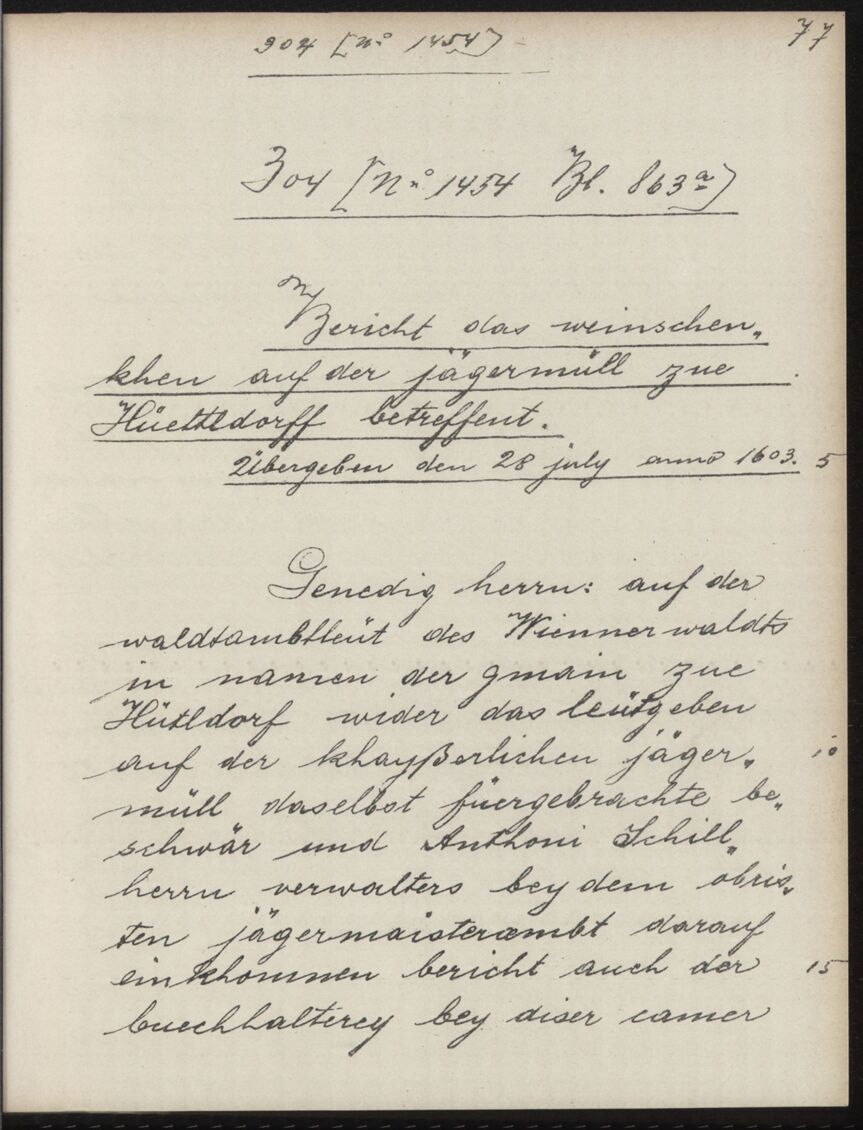 77
304 [No 1454]
304 [No 1454 Bl. 863a]
Bericht das weinschen„
khen auf der jägermüll zue
Hüettldorff betreffent.
Übergeben den 28 july anno 1603. 5
Genedig herrn: auf der
waldtambtleüt des Wiennerwaldts
in namen der gmain zue
Hütldorf wider das leütgeben
auf der khayßerlichen jäger„ 10
müll daselbst füergebrachte be„
schwär und Anthoni Schill„
herrn verwalters bey dem obris„
ten jägermaisterambt darauf
einkhommen bericht auch der 15
buechhalterey bey diser camer